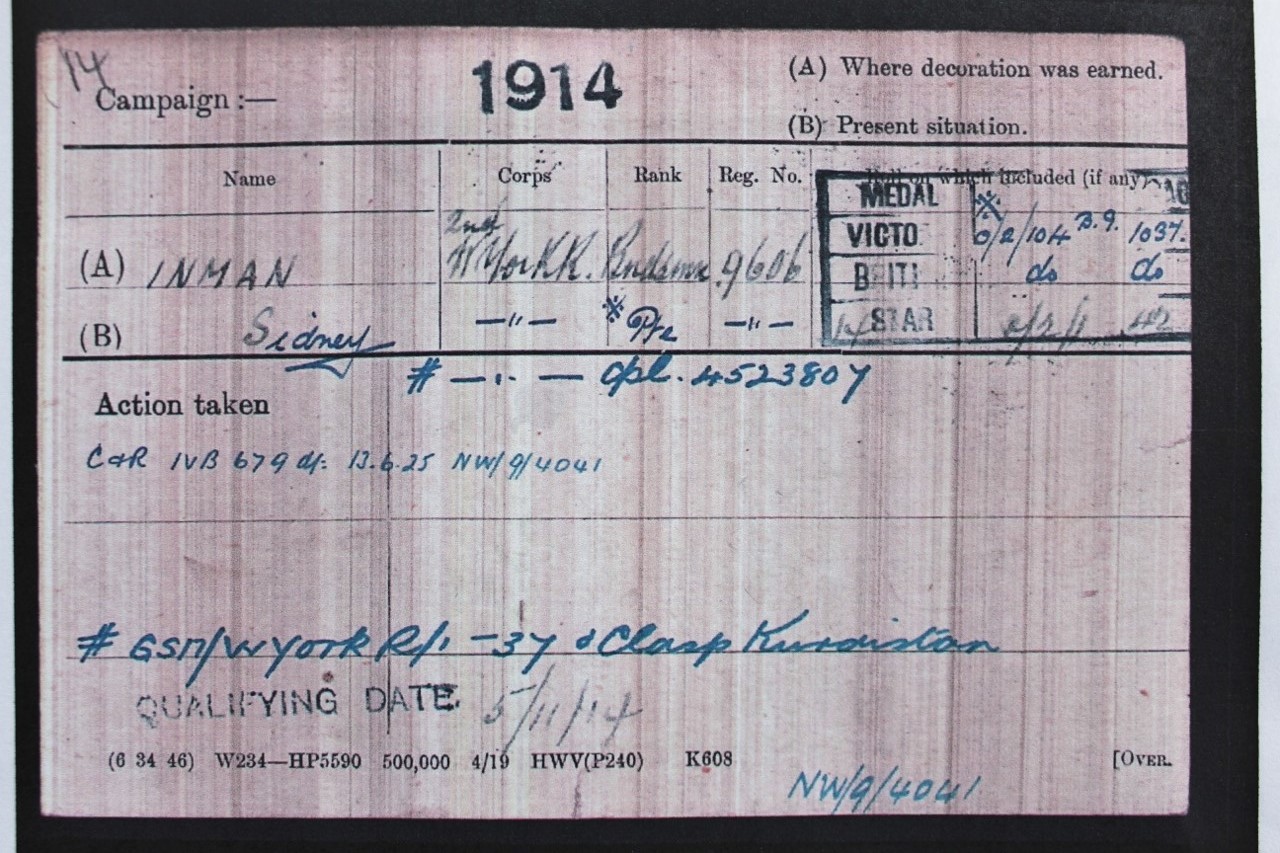 14
Campaign :— 1914 (A) Where decoration was earned.
(B) Present situation.
Name Corps Rank Reg. No. Roll on which included (if any)
MEDAL
2nd
(A) INMAN W York R. Bndsmn 9606
VICTO ※ O/2/104 B.9. 1037.
BRITI do do
(B) Sidney —"— ※ Pte —"—
14 STAR 42
# —"— Cpl. 4523807
Action taken
C&R IVB 679 d/: 13.6.25 NW/9/4041
# GSM/W York R/1 -37 & Clasp Kurdistan
QUALIFYING DATE. 5/11/14
(6 34 46) W234—HP5590 500,000 4/19 HWV(P240) K608 [OVER.
NW/9/4041